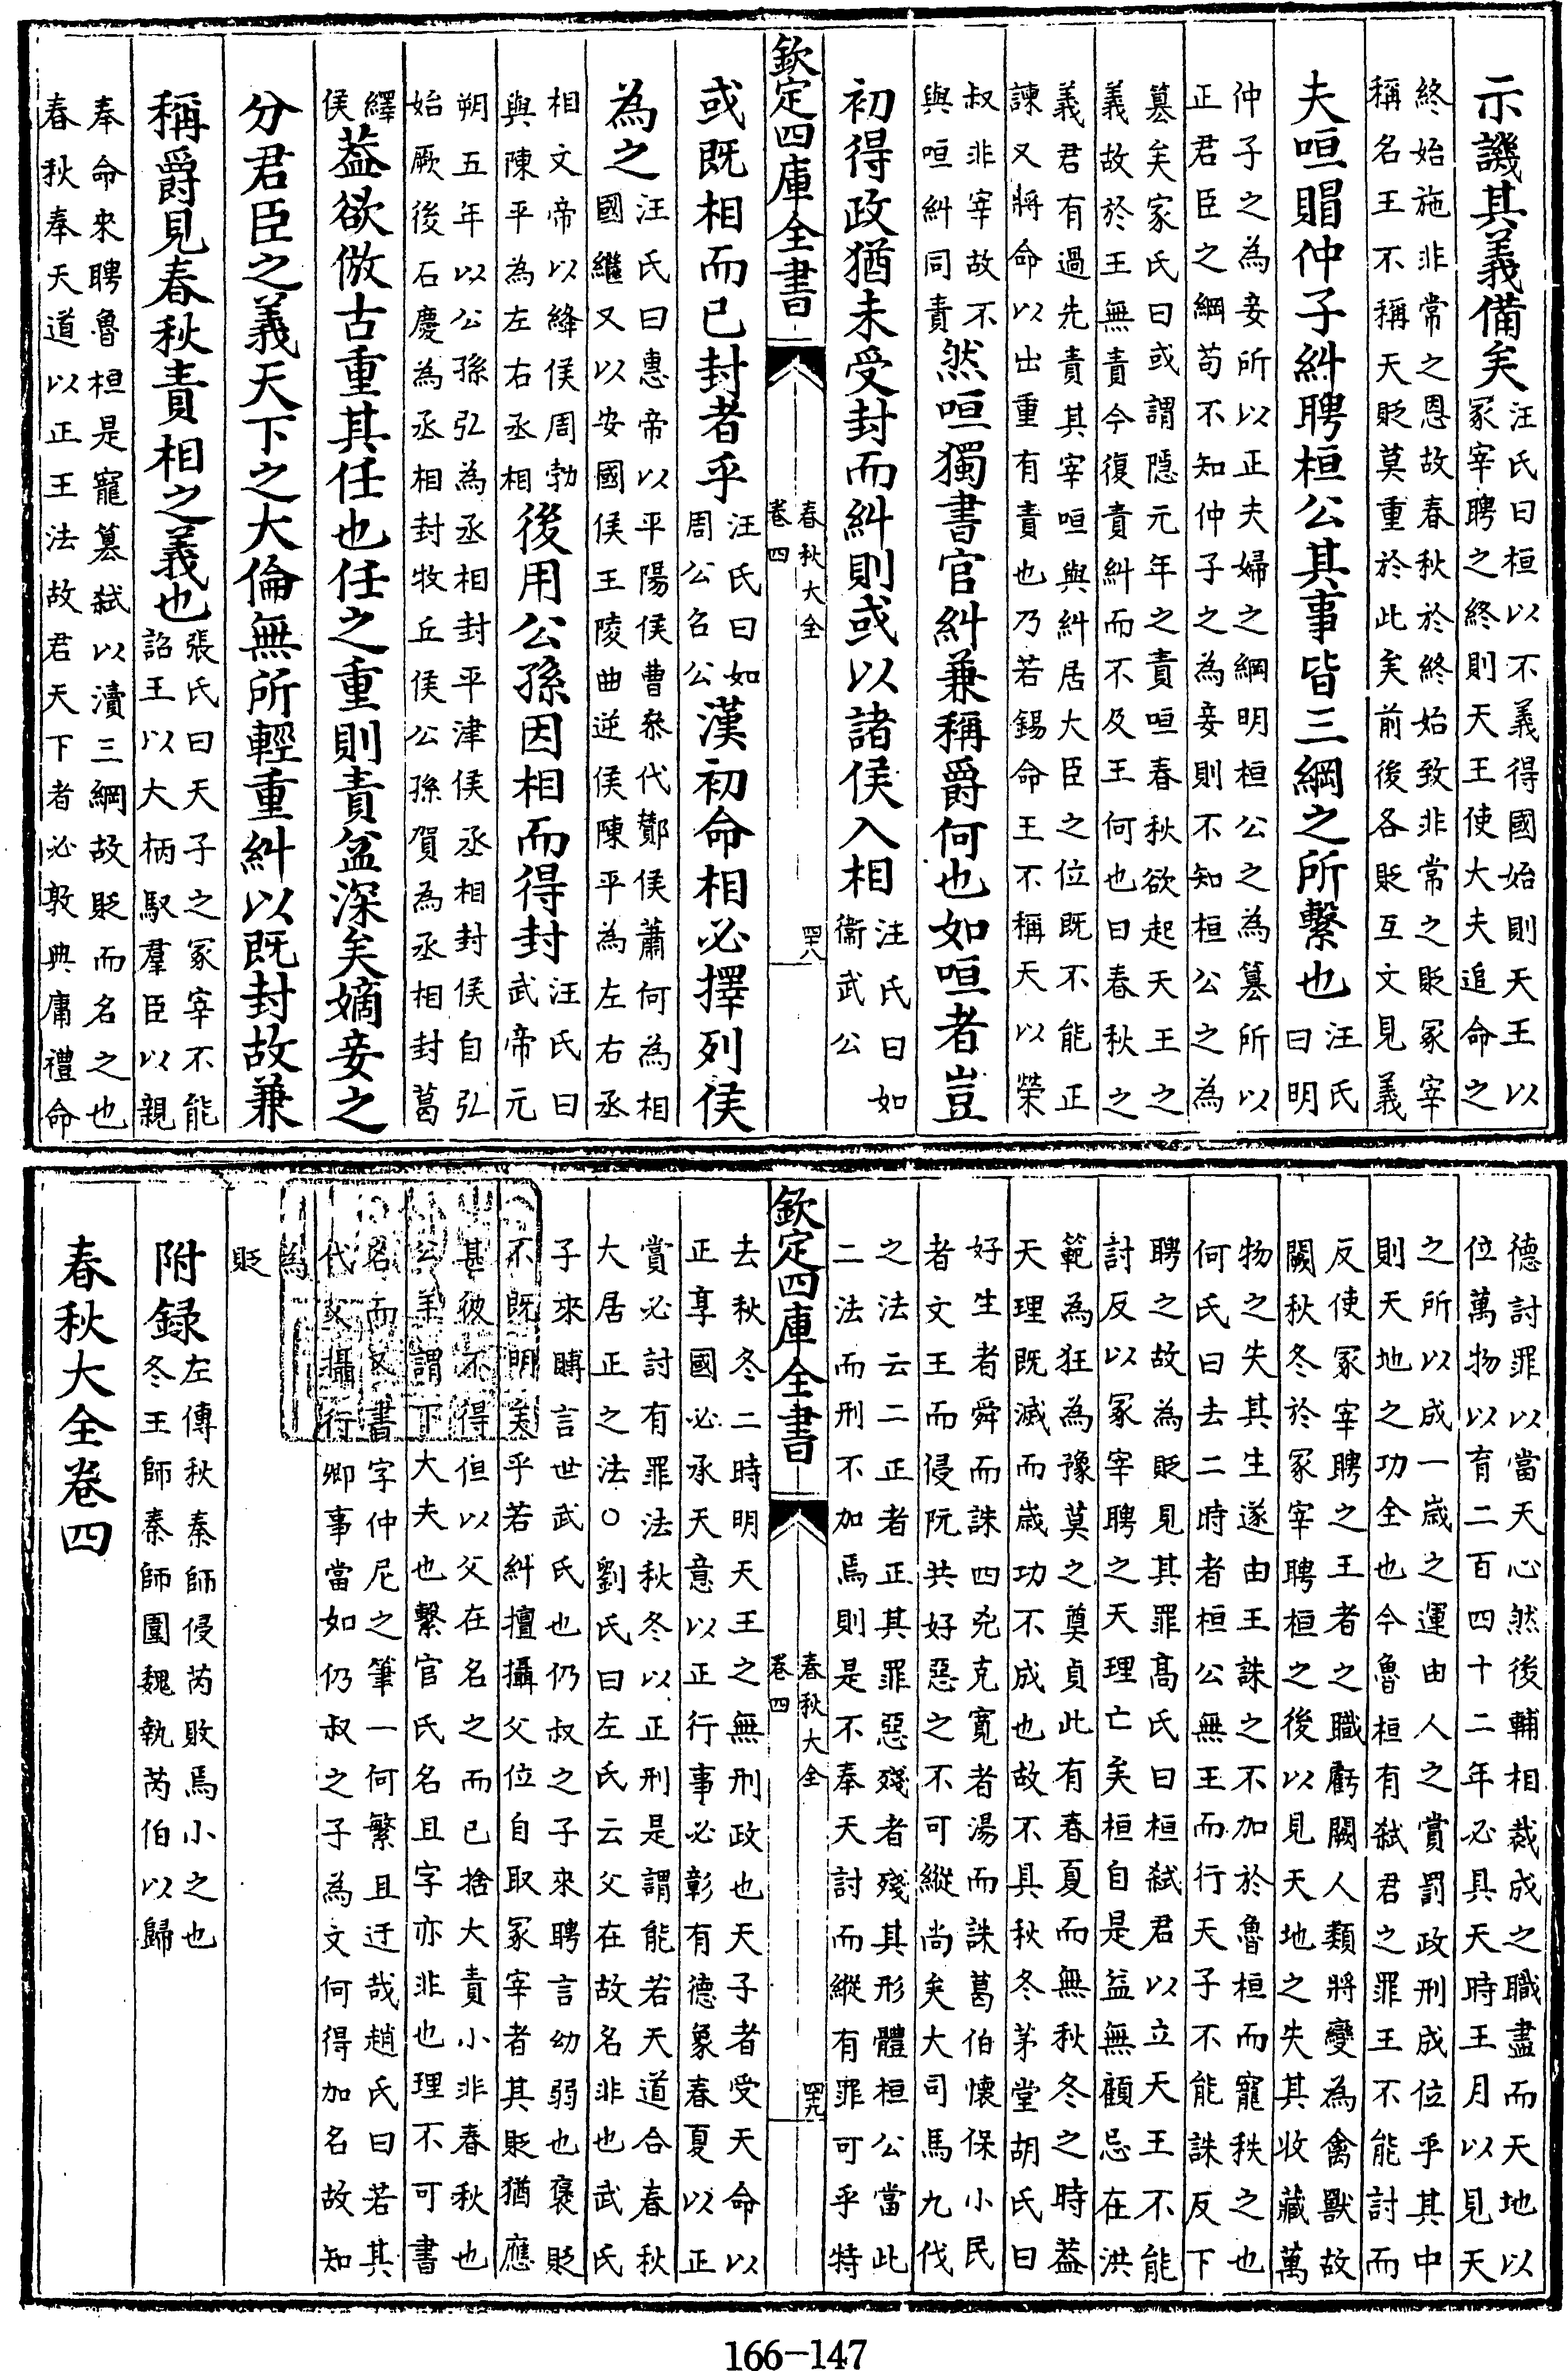 示譏其義備矣汪氏曰桓以不義得國始則天王以
冢宰聘之終則天王使大夫追命之
終始施非常之恩故春秋於終始致非常之貶冢宰
稱名王不稱天貶莫重於此矣前後各貶互文見義
夫咺賵仲子糾聘桓公其事皆三綱之所繫也汪氏
曰明
仲子之為妾所以正夫婦之綱明桓公之為篡所以
正君臣之綱苟不知仲子之為妾則不知桓公之為
篡矣家氏曰或謂隱元年之責咺春秋欲起天王之
義故於王無責今復責糾而不及王何也曰春秋之
義君有過先責其宰咺與糾居大臣之位既不能正
諫又將命以出重有責也乃若錫命王不稱天以榮
叔非宰故不
與咺糾同責然咺獨書官糾兼稱爵何也如咺者豈
初得政猶未受封而糾則或以諸侯入相汪氏曰如
衞武公
欽定四庫全書
春秋大全
卷四
四十八
或既相而已封者乎汪氏曰如
周公召公漢初命相必擇列侯
為之汪氏曰惠帝以平陽侯曹參代酇侯蕭何為相
國繼又以安國侯王陵曲逆侯陳平為左右丞
相文帝以絳侯周勃
與陳平為左右丞相後用公孫因相而得封汪氏曰
武帝元
朔五年以公孫弘為丞相封平津侯丞相封侯自弘
始厥後石慶為丞相封牧丘侯公孫賀為丞相封葛
繹
侯葢欲倣古重其任也任之重則責益深矣嫡妾之
分君臣之義天下之大倫無所輕重糾以既封故兼
稱爵見春秋責相之義也張氏曰天子之冢宰不能
詔王以大柄馭羣臣以親
奉命來聘魯桓是寵篡弑以瀆三綱故貶而名之也
春秋奉天道以正王法故君天下者必敦典庸禮命
德討罪以當天心然後輔相裁成之職盡而天地以
位萬物以育二百四十二年必具天時王月以見天
之所以成一歲之運由人之賞罰政刑成位乎其中
則天地之功全也今魯桓有弑君之罪王不能討而
反使冢宰聘之王者之職虧闕人類將變為禽獸故
闕秋冬於冢宰聘桓之後以見天地之失其收藏萬
物之失其生遂由王誅之不加於魯桓而寵秩之也
何氏曰去二時者桓公無王而行天子不能誅反下
聘之故為貶見其罪高氏曰桓弑君以立天王不能
討反以冢宰聘之天理亡矣桓自是益無顧忌在洪
範為狂為豫莫之奠貞此有春夏而無秋冬之時葢
天理既滅而歲功不成也故不具秋冬茅堂胡氏曰
好生者舜而誅四兇克寬者湯而誅葛伯懷保小民
者文王而侵阮共好惡之不可縱尚矣大司馬九伐
之法云二正者正其罪惡殘者殘其形體桓公當此
二法而刑不加焉則是不奉天討而縱有罪可乎特
欽定四庫全書
春秋大全
卷四
四十九
去秋冬二時明天王之無刑政也天子者受天命以
正享國必承天意以正行事必彰有德象春夏以正
賞必討有罪法秋冬以正刑是謂能若天道合春秋
大居正之法○劉氏曰左氏云父在故名非也武氏
子來賻言世武氏也仍叔之子來聘言幼弱也褒貶
不既明矣乎若糾擅攝父位自取冢宰者其貶猶應
甚彼不得但以父在名之而已捨大責小非春秋也
公羊謂下大夫也繫官氏名且字亦非也理不可書
名而又書字仲尼之筆一何繁且迂哉趙氏曰若其
代父攝行卿事當如仍叔之子為文何得加名故知
為
貶
附録左傳秋秦師侵芮敗焉小之也
冬王師秦師圍魏執芮伯以歸
春秋大全卷四
166-147